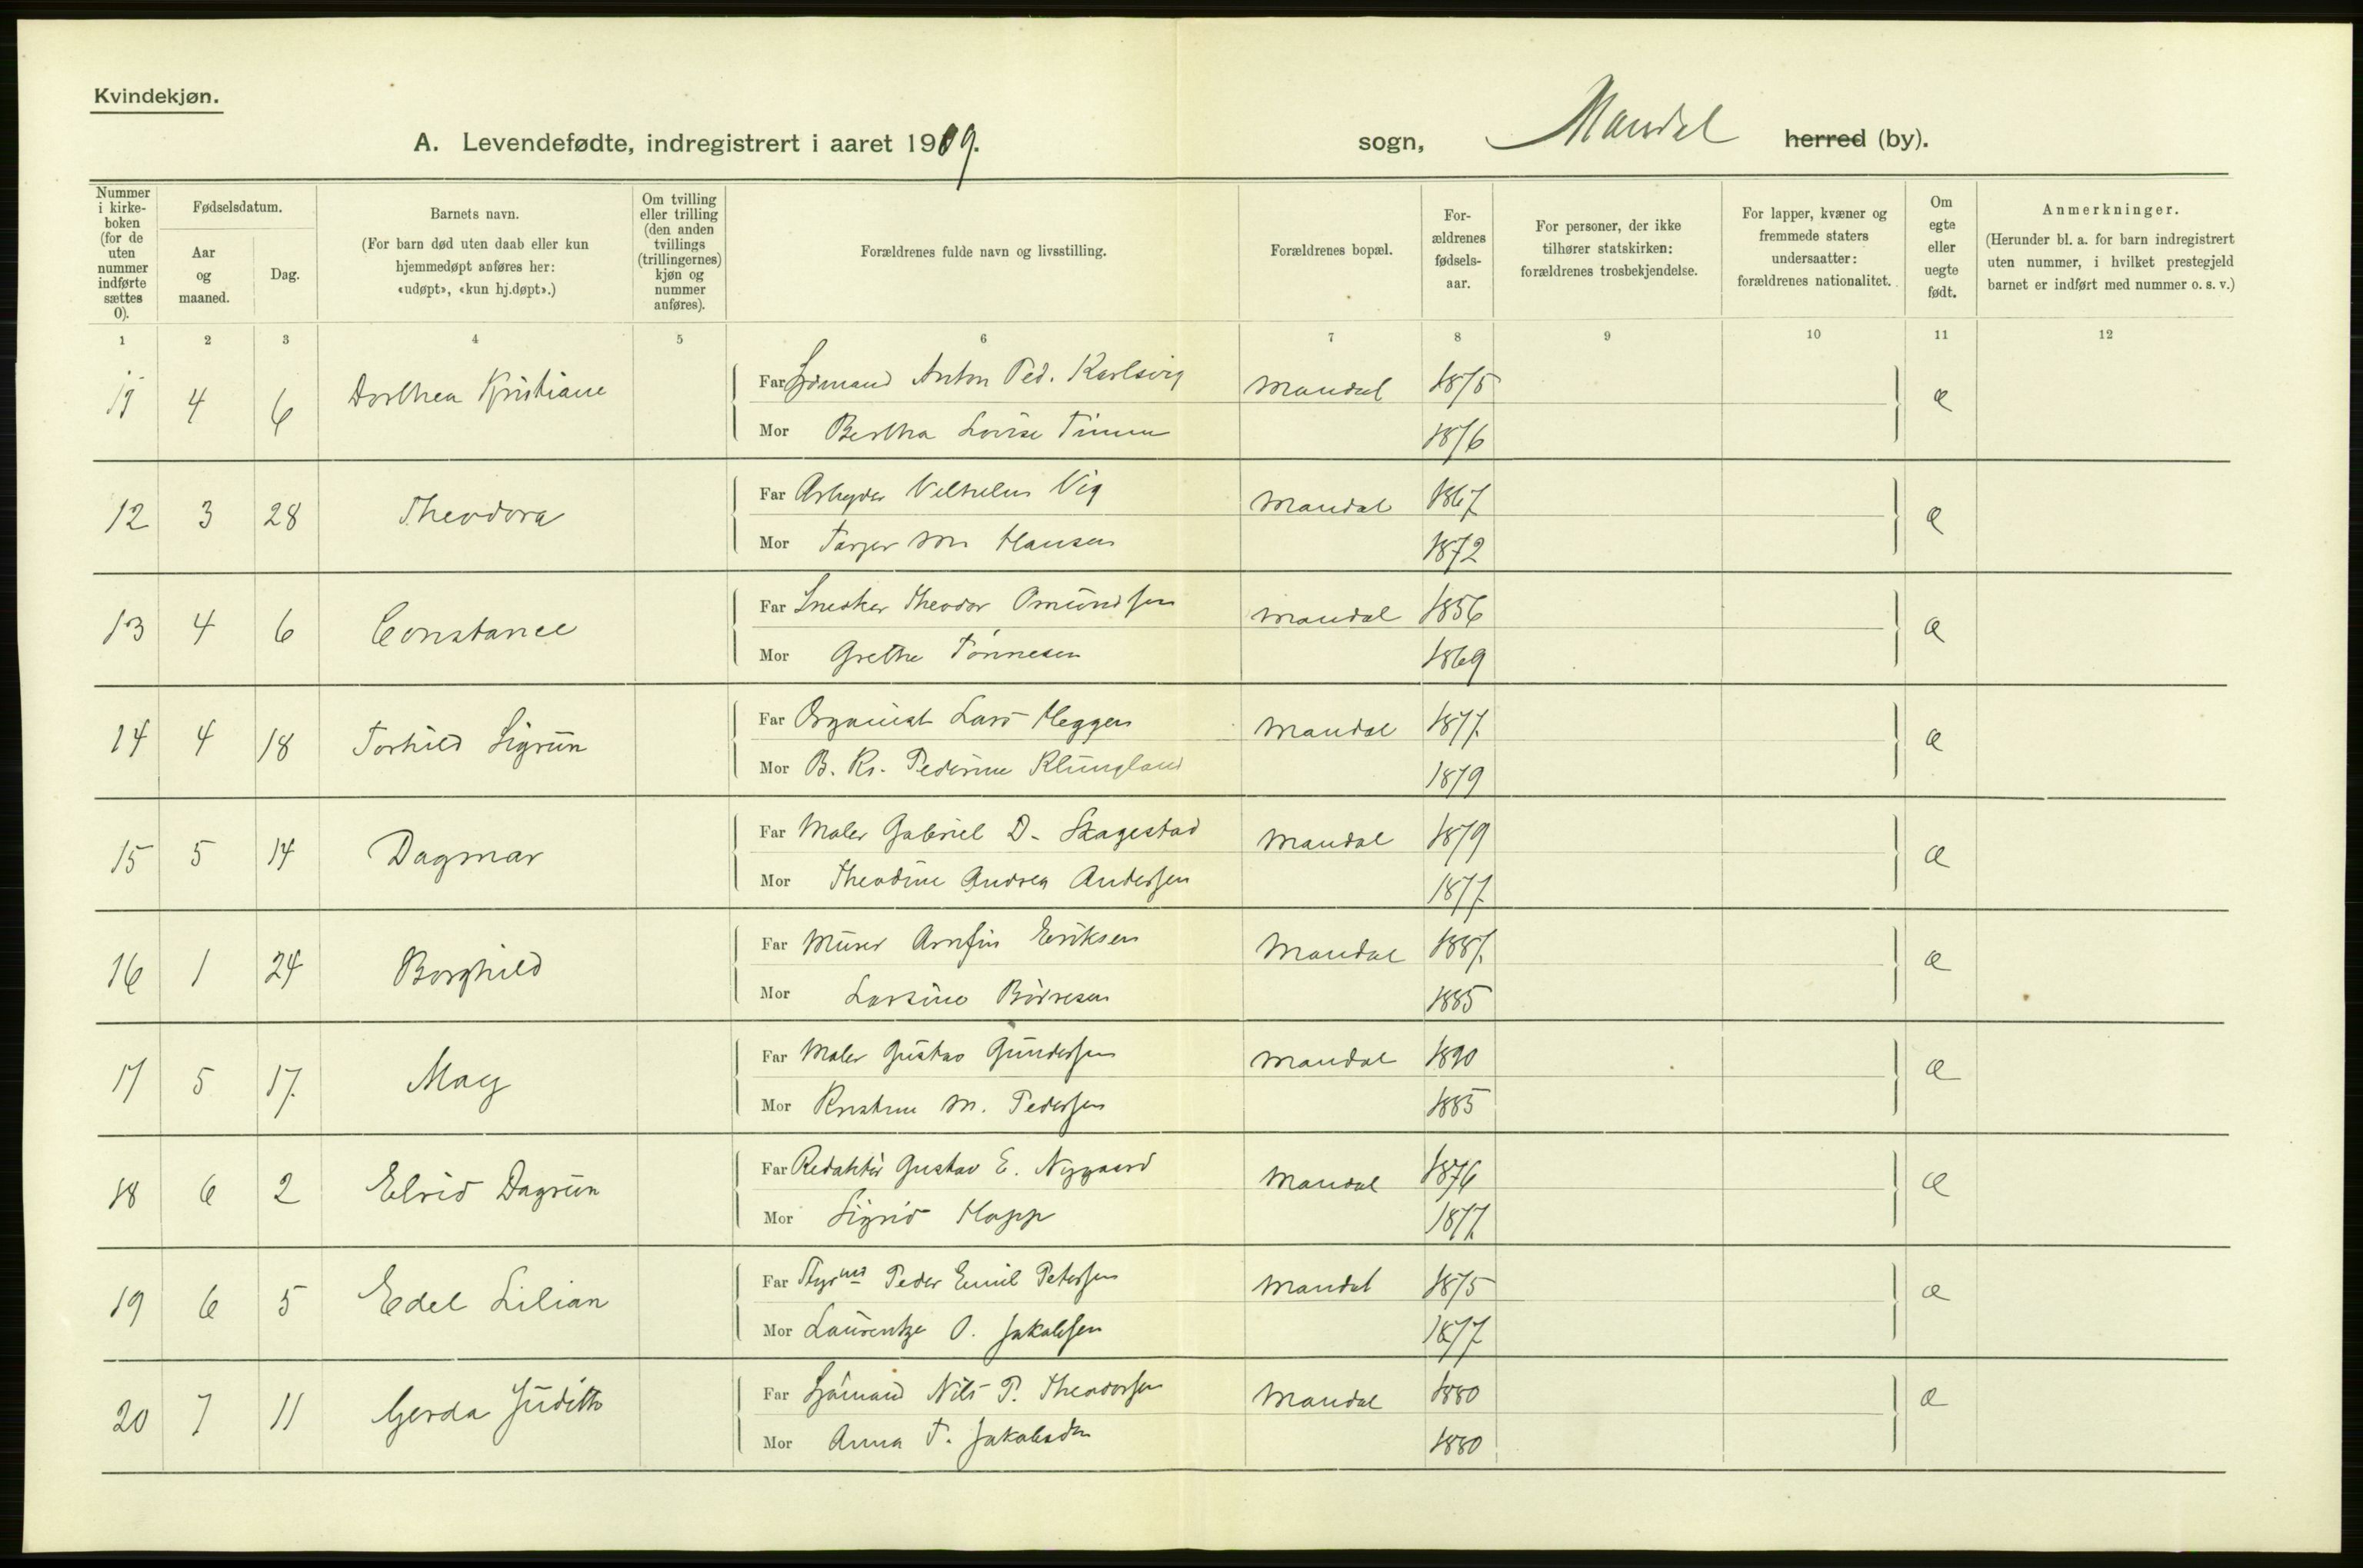 Kvindekjøn.
A. Levendefødte, indregistrert i aaret 1909. sogn, Mandal herred (by).
Nummer i kirke-boken (for de uten nummer indførte sættes 0).
Fødselsdatum.
Aar og maaned.
Dag.
Barnets navn.
(For barn død uten daab eller kun hjemmedøpt anføres her: «udøpt», «kun hj.døpt».)
Om tvilling eller trilling (den anden tvillings (trillingernes) kjøn og nummer anføres).
Forældrenes fulde navn og livsstilling.
Forældrenes bopæl.
For-ældrenes fødsels-aar.
For personer, der ikke tilhører statskirken: forældrenes trosbekjendelse.
For lapper, kvæner og fremmede staters undersaatter: forældrenes nationalitet.
Om egte eller uegte født.
Anmerkninger.
(Herunder bl. a. for barn indregistrert uten nummer, i hvilket prestegjeld barnet er indført med nummer o. s. v.)
1 2 3 4 5 6 7 8 9 10 11 12
Far Sjømand Anton Ped. Karlsvig Mandal 1875
4 6 Dorthea Kristiane æ
Mor Bertha Lovise Timm 1876
Far Arbeyder Vilhelm Vig Mandal 1867
12 3 28 Theodora æ
Mor Hansen 1872
Far Snedker Theodor Omundsen Mandal 1856
13 4 6 Constance æ
Mor Grethe Tønnesen 1869
Far Organist Lars Heggen Mandal 1877
14 4 18 Torhild Sigrun æ
Mor B. Kr. Pederine Klungland 1879
Far Maler Gabriel D. Skagestad Mandal 1879
15 5 14 Dagmar æ
Mor Theodine Andrea Andersen 1877
Far Murer Arnfin Eriksen Mandal 1887
16 1 24 Borghild æ
Mor Larsine Børresen 1885
Far Maler Gustav Gundersen Mandal 1890
17 5 17 May æ
Mor Kristine M. Pedersen 1885
Far Redaktør Gustav E. Nygaard Mandal 1876
18 6 2 Elrid Dagrun æ
Mor Sigrid Happ 1877
Far Styrmd Peder Emil Petersen Mandal 1875
19 6 5 Edel Lilian æ
Mor Laurentze O. Jakobsen 1877
Far Sjømand Nils P. Theodorsen Mandal 1880
20 7 11 Gerda Judith æ
Mor Anna T. Jakobsen 1880